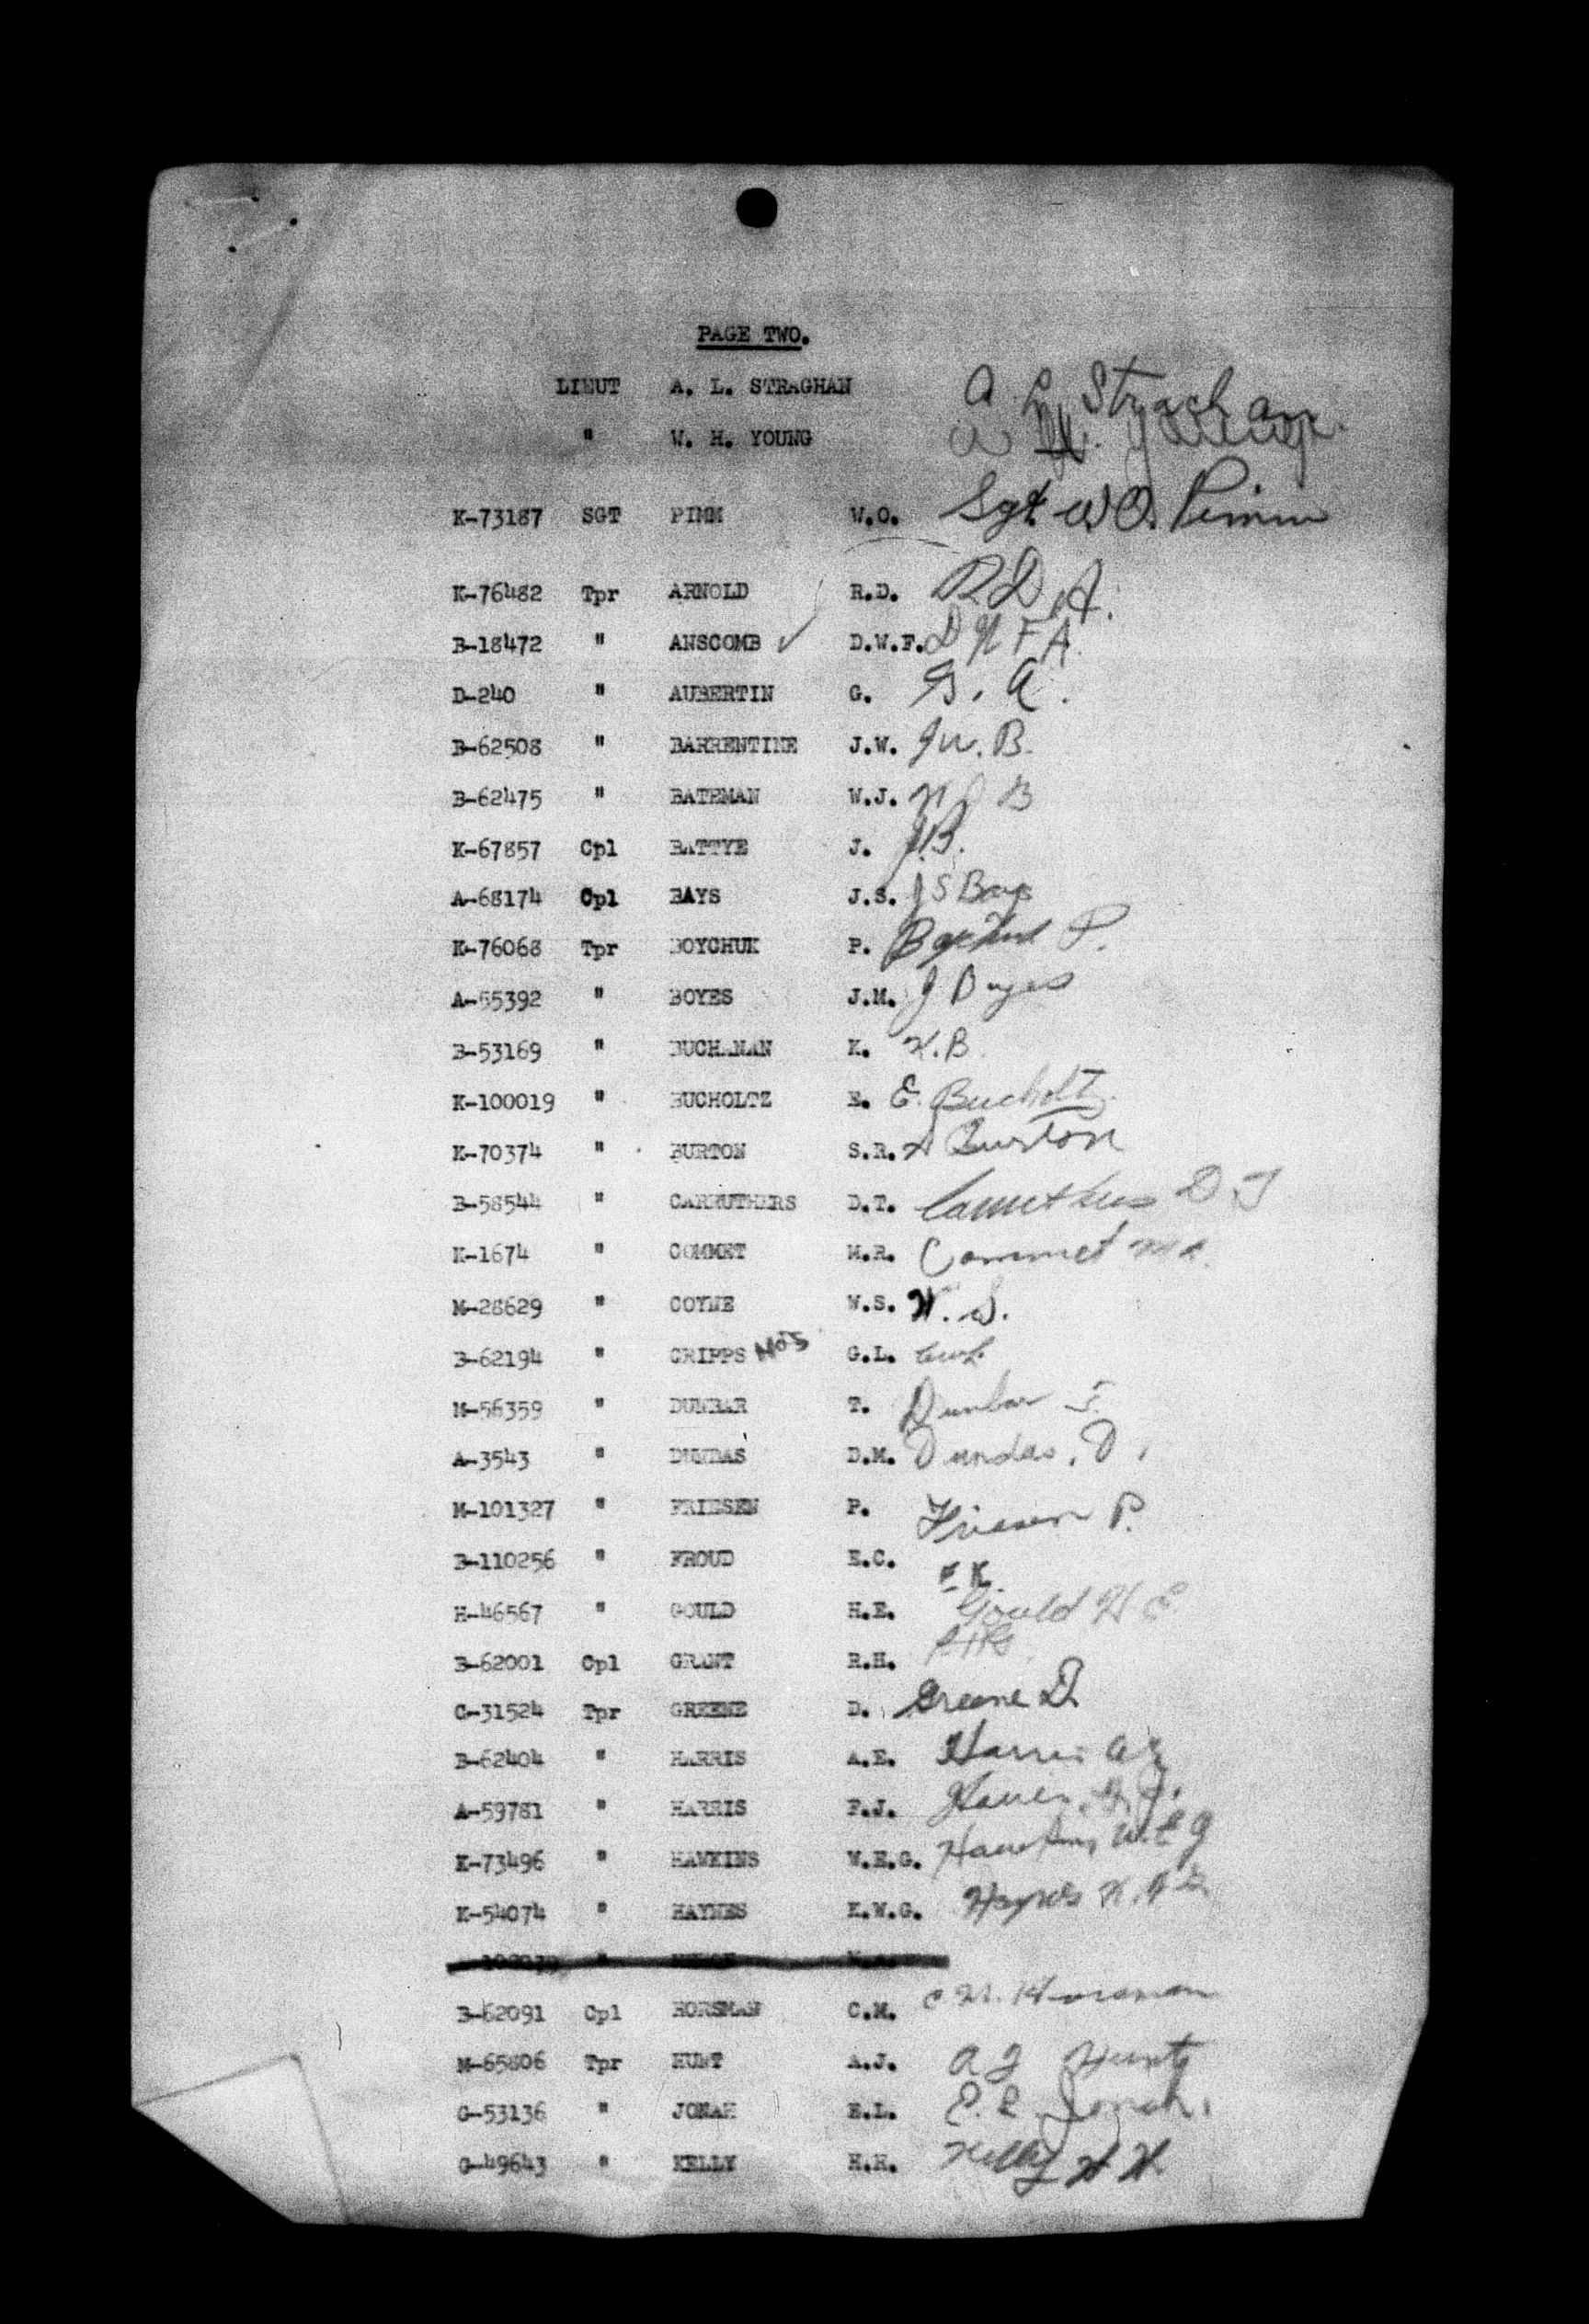 PAGE TWO.
LIEUT A. L. STRAGHAN A. L. Strachan
" W. H. YOUNG W H. Young
K-73187 SGT PIMM W.O. Sgt. W O. Pimm
K-76482 Tpr ARNOLD R.D. R D. A.
B-18472 " ANSCOMB ✓ D.W.F. D W F A.
D-240 " AUBERTIN G. G. A.
B-62508 " BARRENTINE J.W. J W. B.
B-62475 " BATEMAN W.J. W J B
K-67857 Cpl BATTYE J. J.B.
A-68174 Cpl BAYS J.S. J S Bays
K-76068 Tpr BOYCHUK P. Boychuk P.
A-55392 " BOYES J.M. J Boyes
B-53169 " BUCHANAN K. K. B.
K-100019 " BUCHOLTZ E. E. Bucholtz
K-70374 " BURTON S.R. Burton
B-58544 " CARRUTHERS D.T. Carruthers D T
K-1674 " COMMET M.R. Commet M R.
M-28629 " COYNE W.S. W. S.
B-62194 " CRIPPS G.L.
M-56359 " DUNBAR T. Dunbar T.
A-3543 " DUNDAS D.M. Dundas. D.
M-101327 " FRIESEN P. Friesen P.
B-110256 " FROUD E.C.
H-46567 " GOULD H.E. Gould H E
B-62001 Cpl GRANT R.H.
C-31524 Tpr GREENE D. Greene D.
B-62404 " HARRIS A.E. Harris A E
A-59781 " HARRIS F.J. Harris. F. J.
K-73496 " HAWKINS W.E.G. Hawkins W. E G
K-54074 " HAYNES K.W.G. Haynes K. W G.
B-62091 Cpl HORSMAN C.M. C. M. Horsman
M-65806 Tpr HUNT A.J. A J Hunt
G-53136 " JONAH E.L. E. L Jonah.
G-49643 " KELLY H.H. Kelly H H.